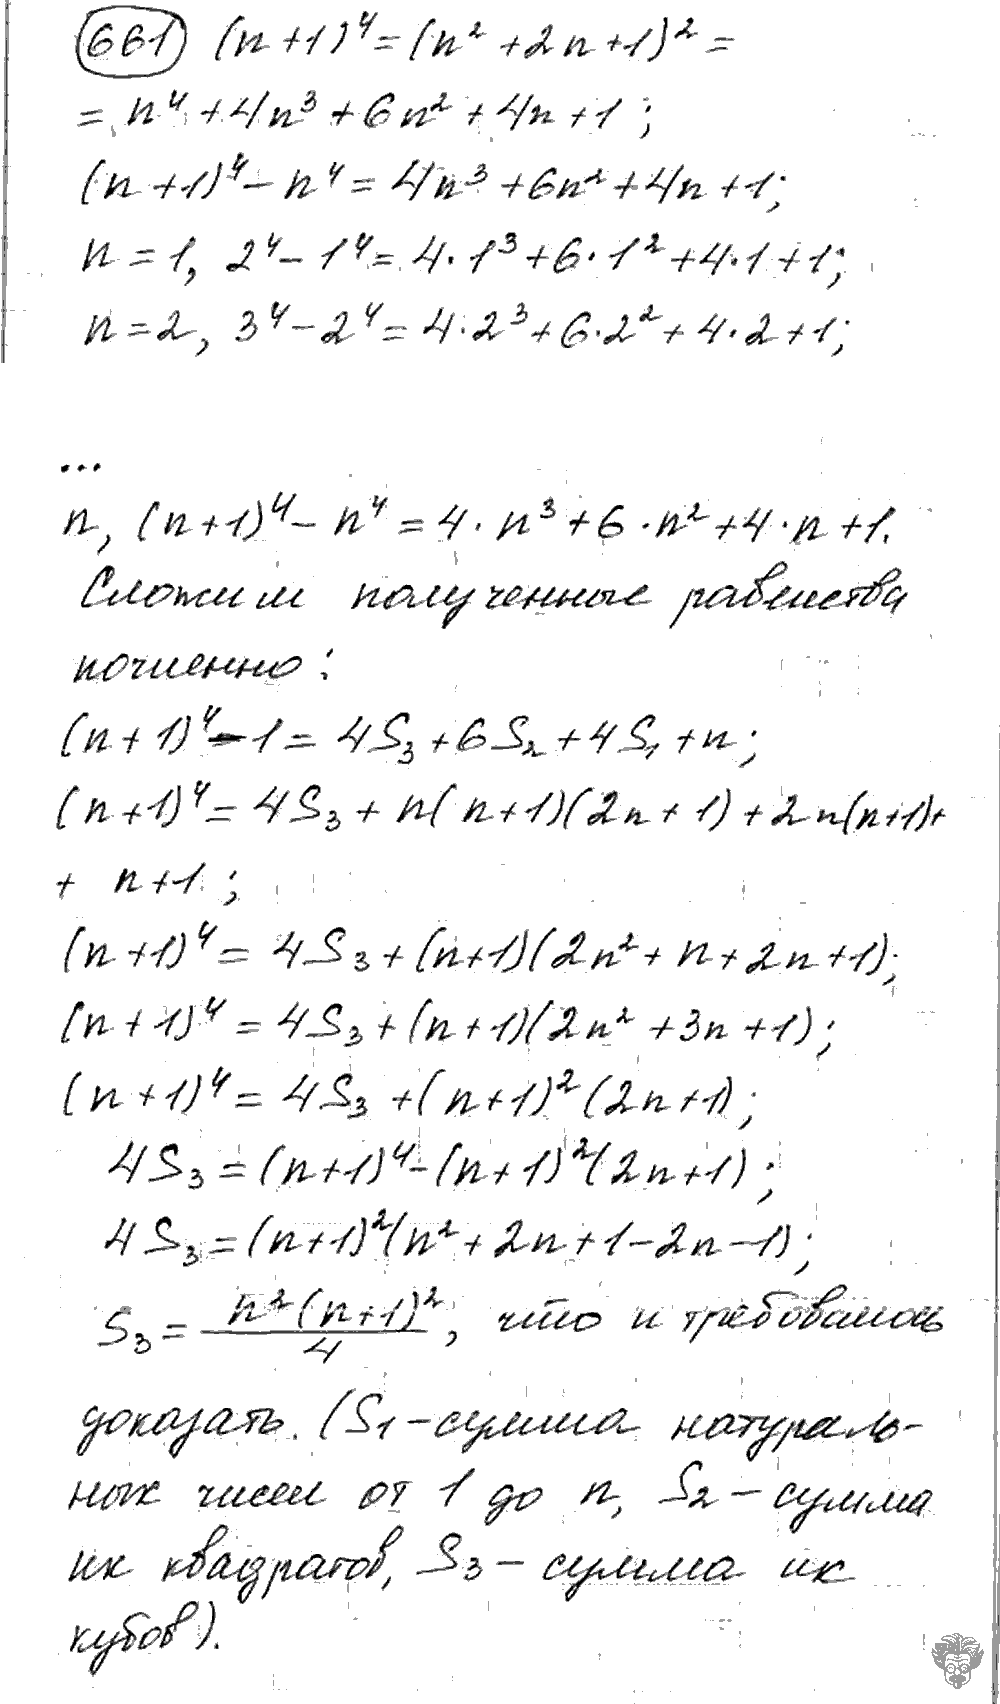 661 (n+1)⁴=(n²+2n+1)²=
=n⁴+4n³+6n²+4n+1;
(n+1)⁴-n⁴=4n³+6n²+4n+1;
n=1, 2⁴-1⁴=4·1³+6·1²+4·1+1;
n=2, 3⁴-2⁴=4·2³+6·2²+4·2+1;
...
n, (n+1)⁴-n⁴=4·n³+6·n²+4·n+1.
Сложим полученные равенства
почленно:
(n+1)⁴-1=4S₃+6S₂+4S₁+n;
(n+1)⁴=4S₃+n(n+1)(2n+1)+2n(n+1)+
+ n+1;
(n+1)⁴=4S₃+(n+1)(2n²+n+2n+1);
(n+1)⁴=4S₃+(n+1)(2n²+3n+1);
(n+1)⁴=4S₃+(n+1)²(2n+1);
4S₃=(n+1)⁴-(n+1)²(2n+1);
4S₃=(n+1)²(n²+2n+1-2n-1);
S₃=n²(n+1)²/4, что и требовалось
доказать. (S₁-сумма натураль-
ных чисел от 1 до n, S₂-сумма
их квадратов, S₃-сумма их
кубов).